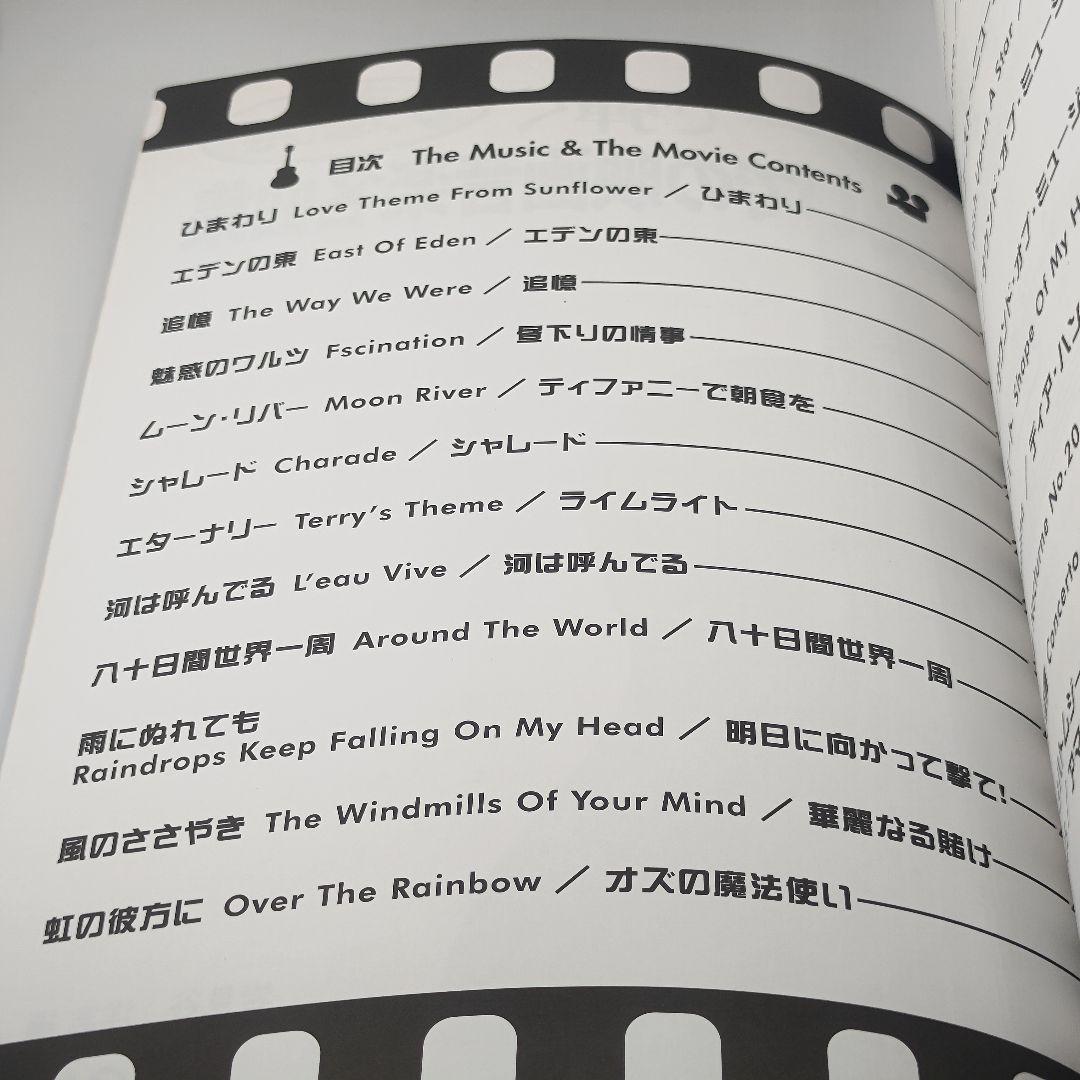 目次 The Music & The Movie Contents
ひまわり Love Theme From Sunflower ／ ひまわり
エデンの東 East Of Eden ／ エデンの東
追憶 The Way We Were ／ 追憶
魅惑のワルツ Fscination ／ 昼下りの情事
ムーン・リバー Moon River ／ ティファニーで朝食を
シャレード Charade ／ シャレード
エターナリー Terry's Theme ／ ライムライト
河は呼んでる L'eau Vive ／ 河は呼んでる
八十日間世界一周 Around The World ／ 八十日間世界一周
雨にぬれても
Raindrops Keep Falling On My Head ／ 明日に向かって撃て!
風のささやき The Windmills Of Your Mind ／ 華麗なる賭け
虹の彼方に Over The Rainbow ／ オズの魔法使い
A Star
サウンド・オブ・ミュージ
Shape Of My H
／ ディア・ハン
No.20
Concerto